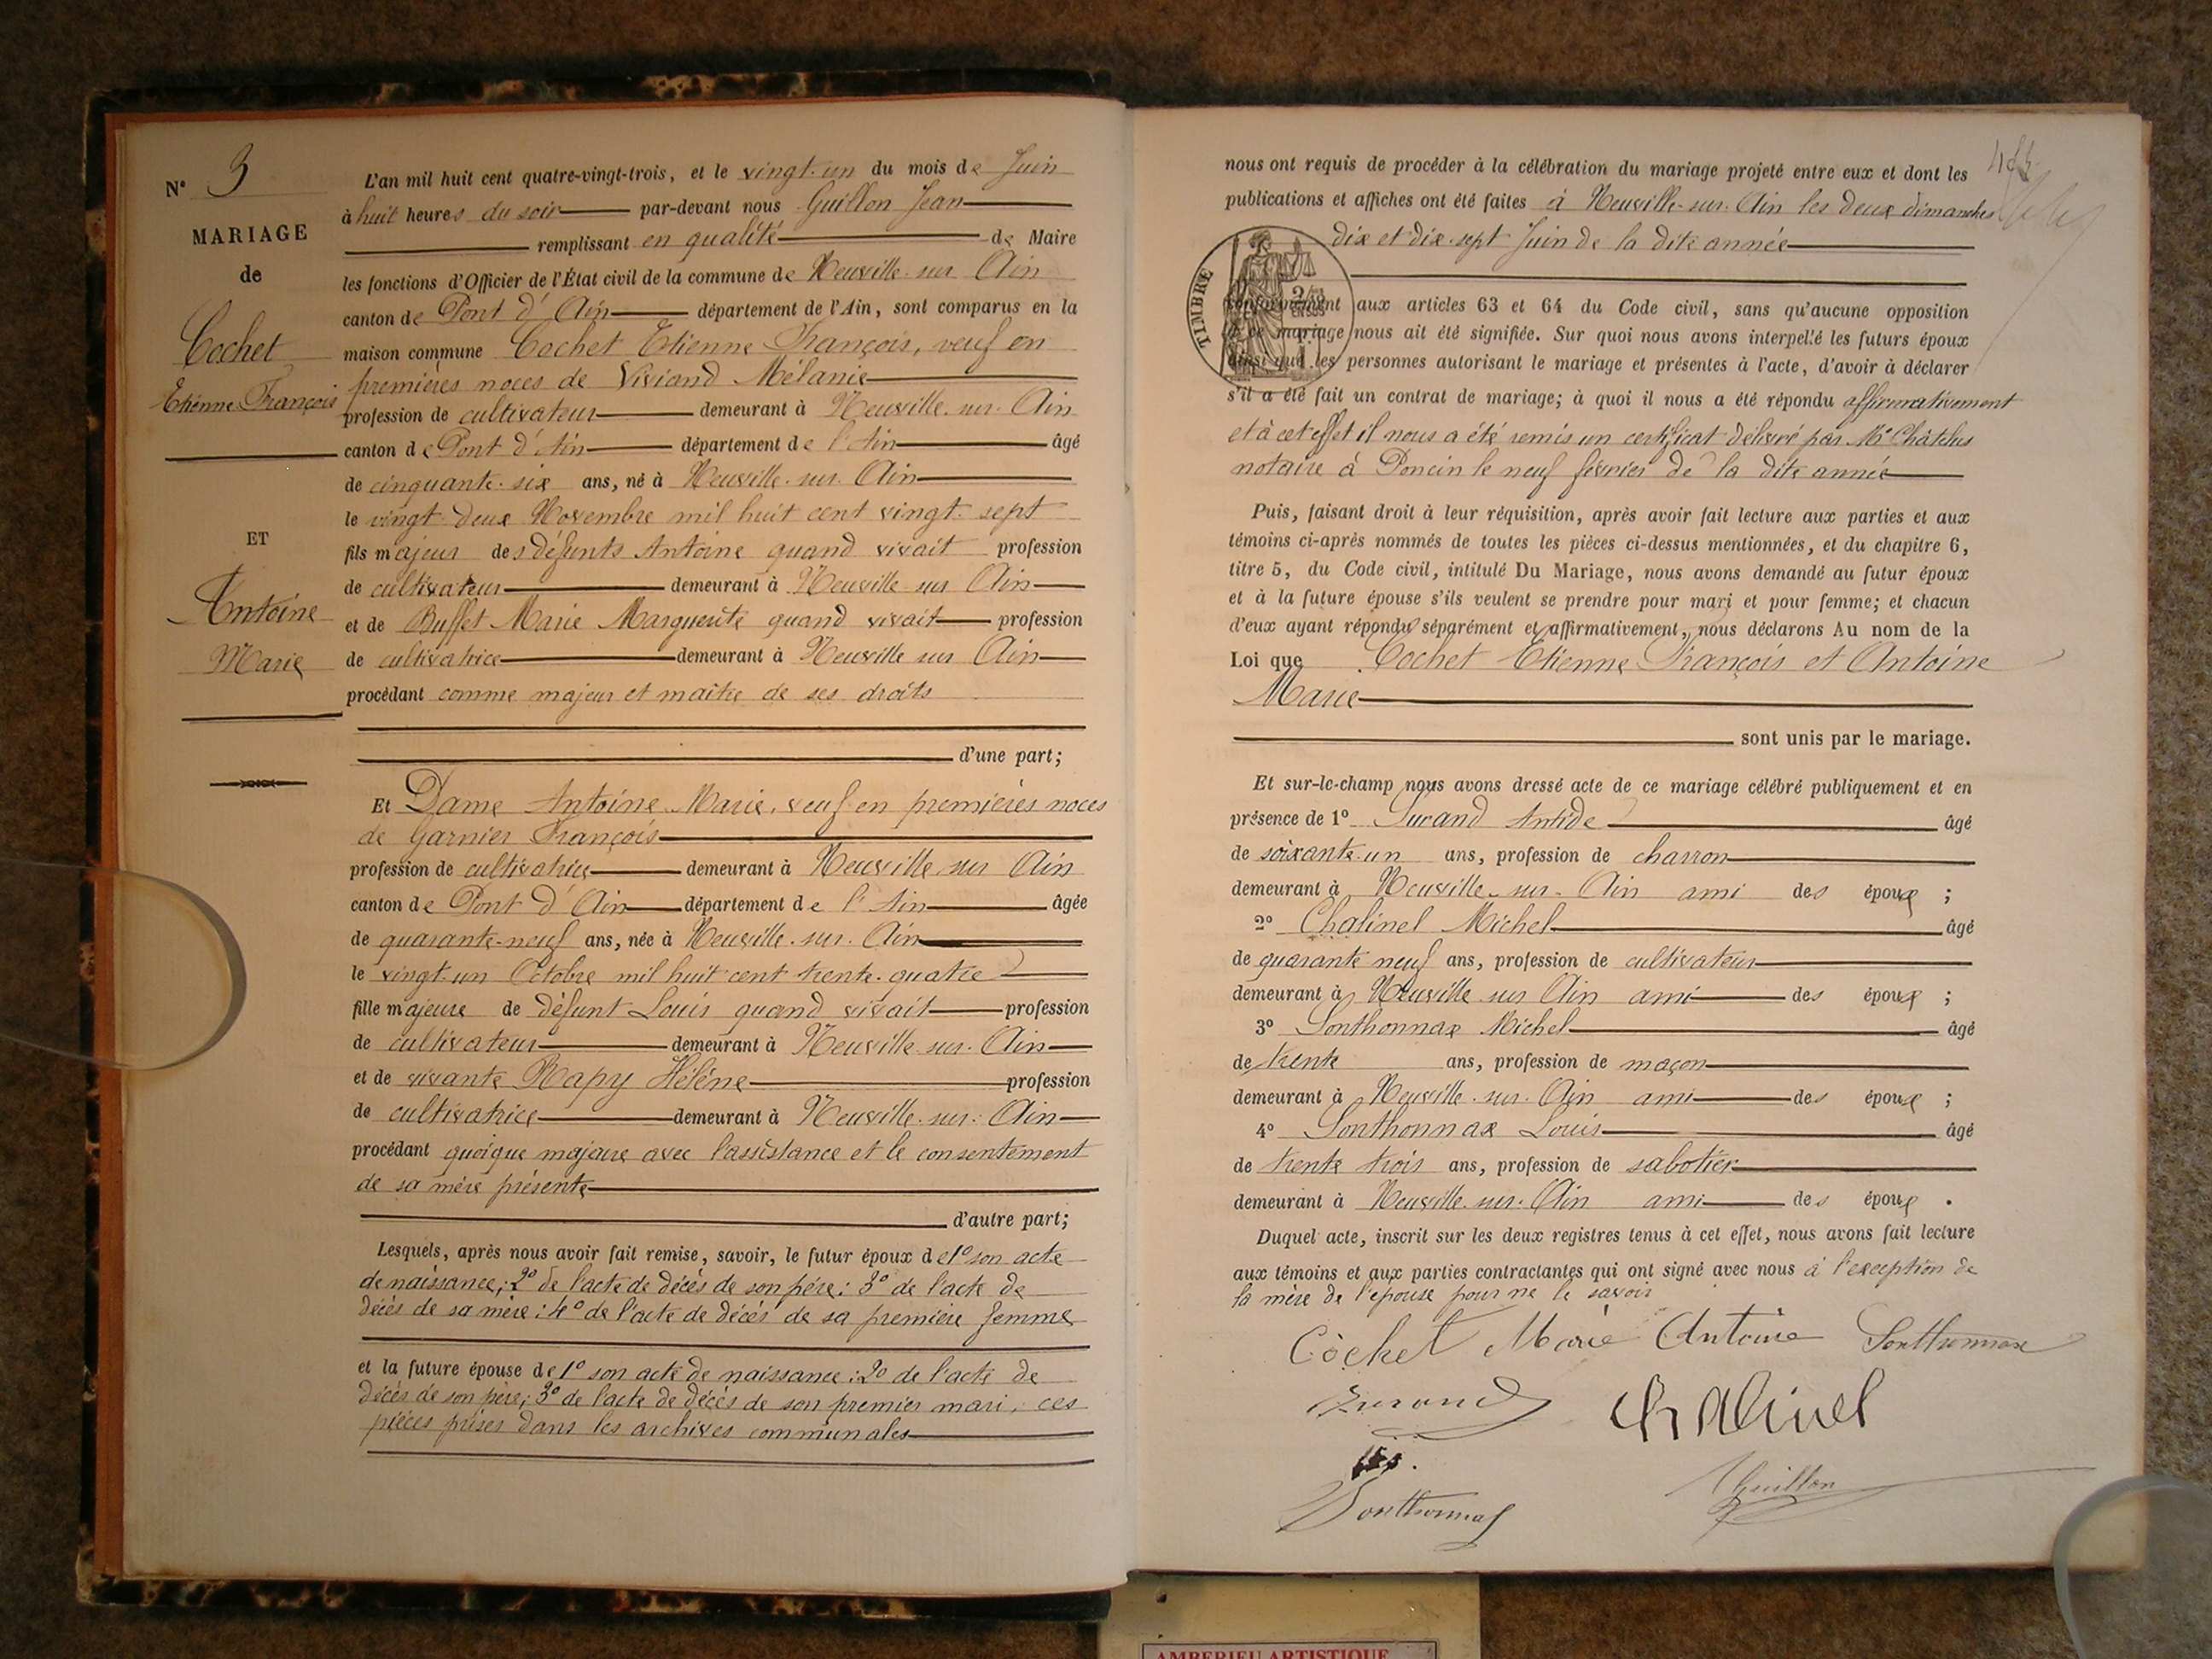 N° 3
MARIAGE
de
Cochet
Etienne François
ET
Antoine
Marie
L'an mil huit cent quatre-vingt-trois, et le vingt-un du mois de Juin
à huit heures du soir par-devant nous Guillon Jean
remplissant en qualité de Maire
les fonctions d'Officier de l'État civil de la commune de Neuville-sur Ain
canton de Pont d'Ain département de l'Ain, sont comparus en la
maison commune Cochet Etienne François, veuf en
premières noces de Viviand Mélanie
profession de cultivateur demeurant à Neuville-sur-Ain
canton de Pont d'Ain département de l'Ain âgé
de cinquante-six ans, né à Neuville-sur-Ain
le vingt-deux Novembre mil huit cent vingt-sept
fils majeur des défunts Antoine quand vivait profession
de cultivateur demeurant à Neuville-sur Ain
et de Buffet Marie Marguerite quand vivait profession
de cultivatrice demeurant à Neuville sur Ain
procédant comme majeur et maître de ses droits
d'une part;
Et Dame Antoine Marie, veuf en premières noces
de Garnier François
profession de cultivatrice demeurant à Neuville-sur Ain
canton de Pont d'Ain département de l'Ain âgée
de quarante-neuf ans, née à Neuville-sur-Ain
le vingt-un Octobre mil huit cent trente-quatre
fille majeure de défunt Louis quand vivait profession
de cultivateur demeurant à Neuville-sur-Ain
et de vivante Rapy Hélène profession
de cultivatrice demeurant à Neuville-sur-Ain
procédant quoique majeure avec l'assistance et le consentement
de sa mère présente
d'autre part;
Lesquels, après nous avoir fait remise, savoir, le futur époux de 1° son acte
de naissance; 2° de l'acte de décès de son père: 3° de l'acte de
décès de sa mère: 4° de l'acte de décès de sa première femme
et la future épouse de 1° son acte de naissance: 2° de l'acte de
décès de son père; 3° de l'acte de décès de son premier mari, ces
pièces prises dans les archives communales
nous ont requis de procéder à la célébration du mariage projeté entre eux et dont les
publications et affiches ont été faites à Neuville-sur-Ain les deux dimanches
dix et dix-sept Juin de la dite année
TIMBRE
conformément aux articles 63 et 64 du Code civil, sans qu'aucune opposition
à ce mariage nous ait été signifiée. Sur quoi nous avons interpellé les futurs époux
ainsi que les personnes autorisant le mariage et présentes à l'acte, d'avoir à déclarer
s'il a été fait un contrat de mariage; à quoi il nous a été répondu affirmativement
et à cet effet il nous a été remis un certificat délivré par Me Châtelus
notaire à Poncin le neuf février de la dite année
Puis, faisant droit à leur réquisition, après avoir fait lecture aux parties et aux
témoins ci-après nommés de toutes les pièces ci-dessus mentionnées, et du chapitre 6,
titre 5, du Code civil, intitulé Du Mariage, nous avons demandé au futur époux
et à la future épouse s'ils veulent se prendre pour mari et pour femme; et chacun
d'eux ayant répondu séparément et affirmativement, nous déclarons Au nom de la
Loi que Cochet Etienne François et Antoine
Marie
sont unis par le mariage.
Et sur-le-champ nous avons dressé acte de ce mariage célébré publiquement et en
présence de 1° Durand Antide âgé
de soixante-un ans, profession de charron
demeurant à Neuville-sur-Ain ami des époux ;
2° Chalinel Michel âgé
de quarante neuf ans, profession de cultivateur
demeurant à Neuville sur Ain ami des époux ;
3° Sonthonnax Michel âgé
de trente ans, profession de maçon
demeurant à Neuville-sur-Ain ami des époux ;
4° Sonthonnax Louis âgé
de trente trois ans, profession de sabotier
demeurant à Neuville-sur-Ain ami des époux .
Duquel acte, inscrit sur les deux registres tenus à cet effet, nous avons fait lecture
aux témoins et aux parties contractantes qui ont signé avec nous à l'exception de
la mère de l'épouse pour ne le savoir
Cochet Marie Antoine Sonthonnax
Durand Chalinel
Sonthonnax Guillon
AMBERIEU ARTISTIQUE